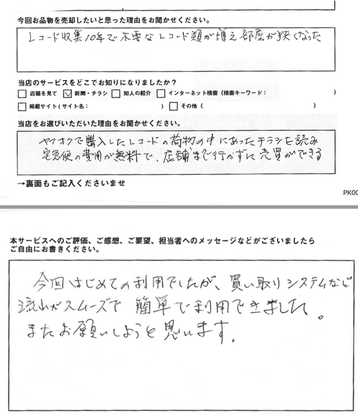 今回お品物を売却したいと思った理由をお聞かせください。
レコード収集10年で不要なレコード類が増え部屋が狭くなった
当店のサービスをどこでお知りになりましたか?
店舗を見て 新聞・チラシ 知人の紹介 インターネット検索(検索キーワード: )
掲載サイト(サイト名: ) その他( )
当店をお選びいただいた理由をお聞かせください。
ヤフオクで購入したレコードの荷物の中にあったチラシを読み
宅急便の費用が無料で、店舗まで行かずに売買ができる
→裏面もご記入くださいませ
PK00
本サービスへのご評価、ご感想、ご要望、担当者へのメッセージなどがございましたら
ご自由にお書きください。
今回はじめての利用でしたが、買い取りシステムなど
流れがスムーズで簡単で利用できました。
またお願いしようと思います。